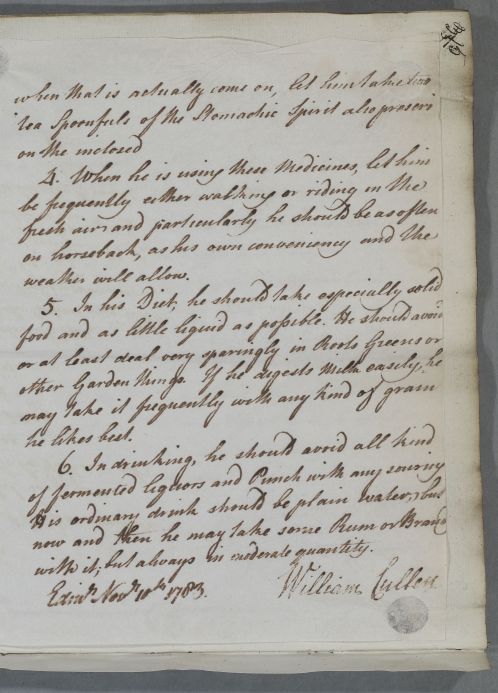 when that is actually come on, let him take two
tea Spoonfuls of the Stomachic Spirit also prescri
on the inclosed
4. When he is using these Medicines, let him
be frequently either walking or riding in the
fresh air, and particularly he should be as often
on horseback, as his own conveniency and the
weather will allow.
5. In his Diet, he should take especially solid
food and as little liquid as possible. He should avoid
or at least deal very sparingly in Roots Greens or
other Garden things. If he digests Milk easily, he
may take it frequently with any kind of grain
he likes best.
6. In drinking, he should avoid all kind
of fermented liquors and Punch with any souring
His ordinary drink should be plain water, but
now and then he may take some Rum or Brand
with it, but always in moderate quantity.
Edinr. Novr. 10th 1783.
William Cullen